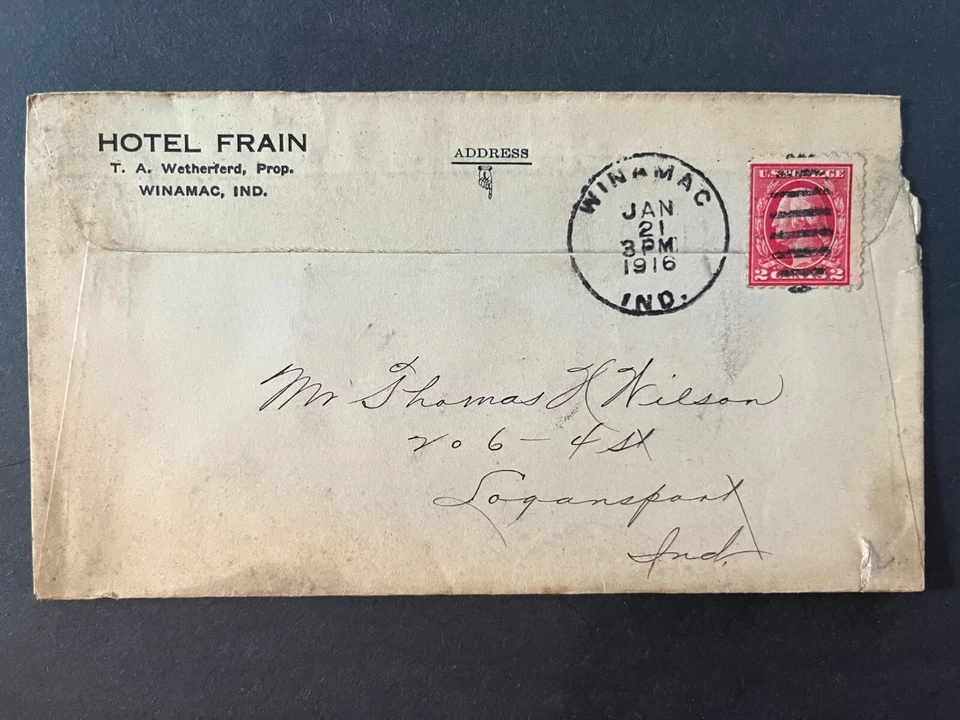 HOTEL FRAIN
T. A. Wetherferd, Prop.
WINAMAC, IND.
ADDRESS
WINAMAC
JAN
21
3 PM
1916
IND.
U.S. POSTAGE
2 CENTS 2
Mr Thomas H Wilson
206 - 4 st
Logansport
Ind.